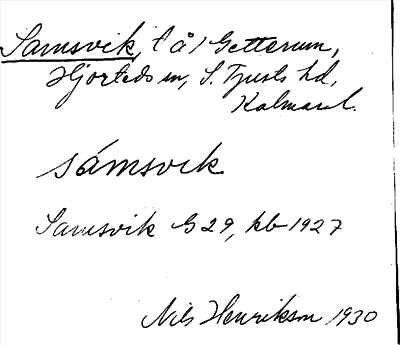 Samsvik, t å 1 Getterum,
Hjorteds sn, S. Tjusts hd,
Kalmar l.
sámsvik
Samsvik G 29, kb 1927
Nils Henrikson 1930